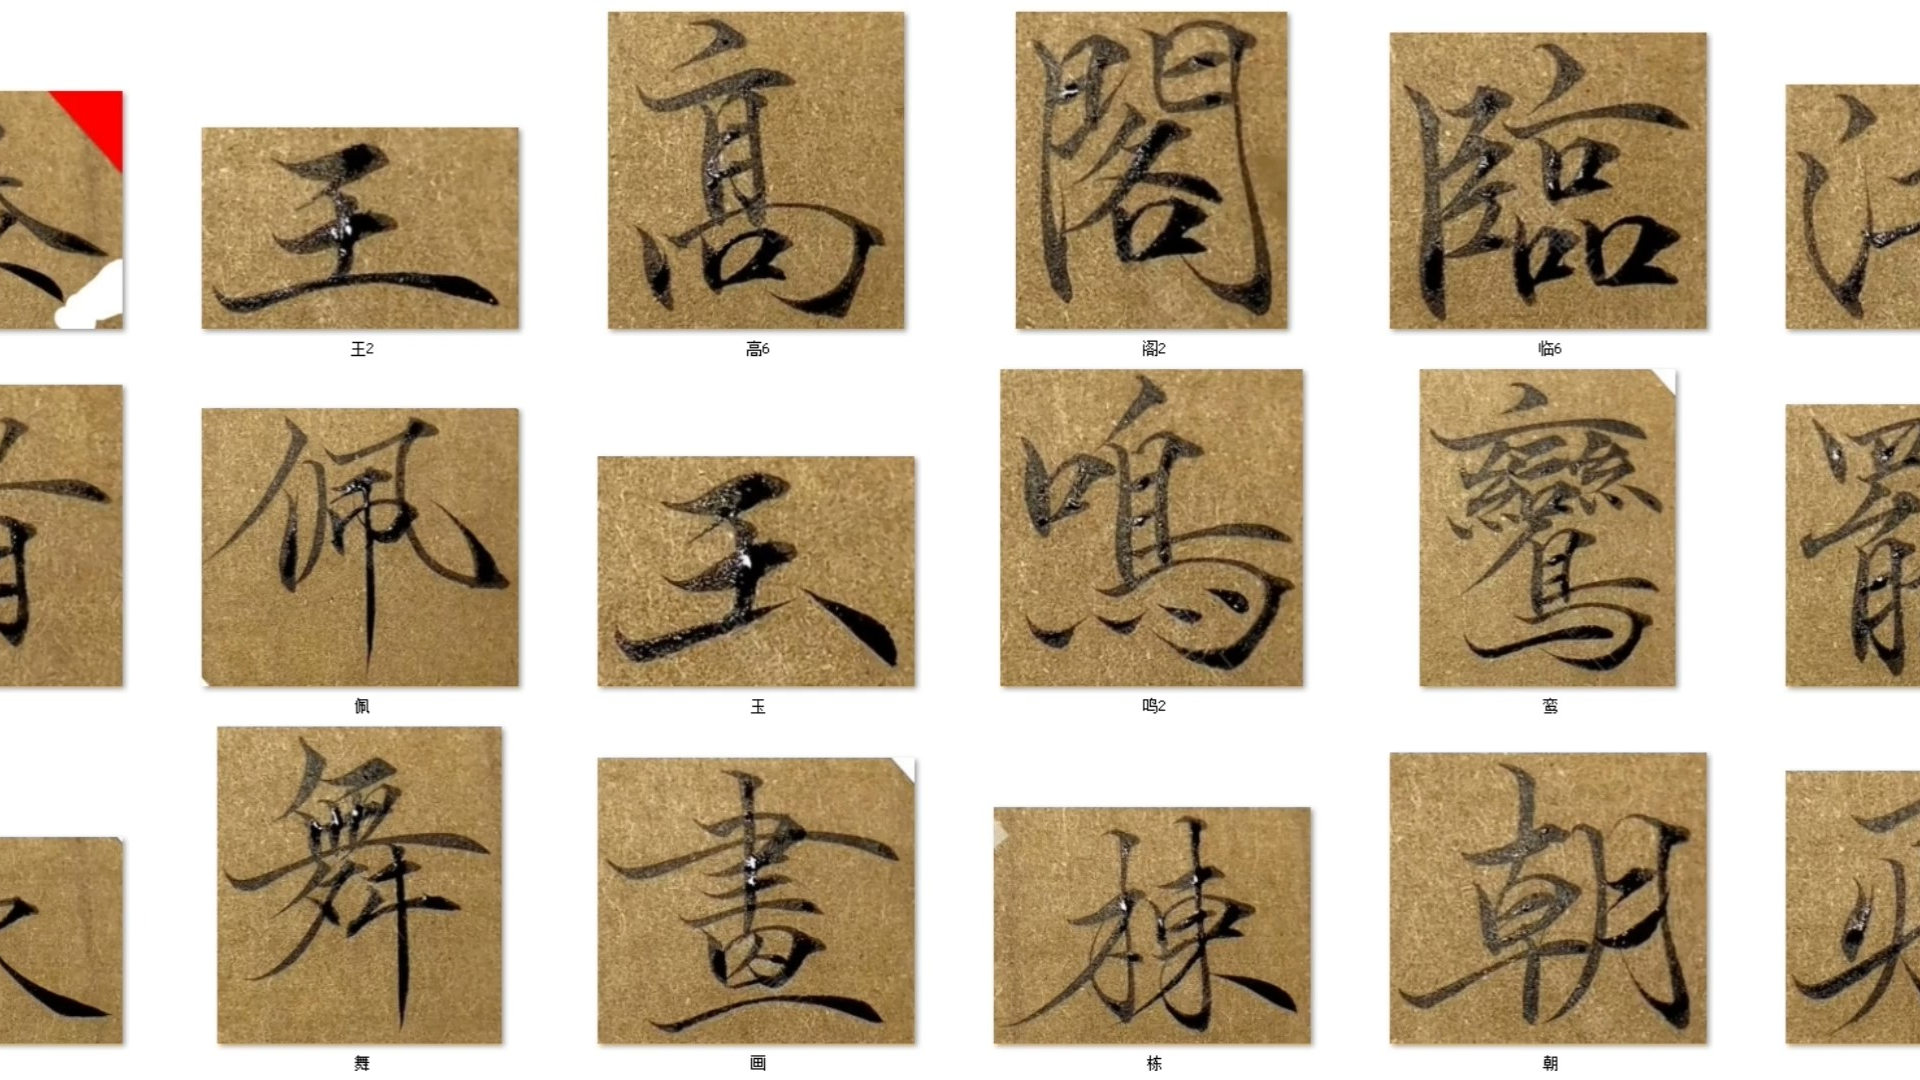 王 高 閣 臨
王2 高6 阁2 临6
佩 玉 鳴 鸞
佩 玉 鸣2 鸾
舞 畫 棟 朝
舞 画 栋 朝